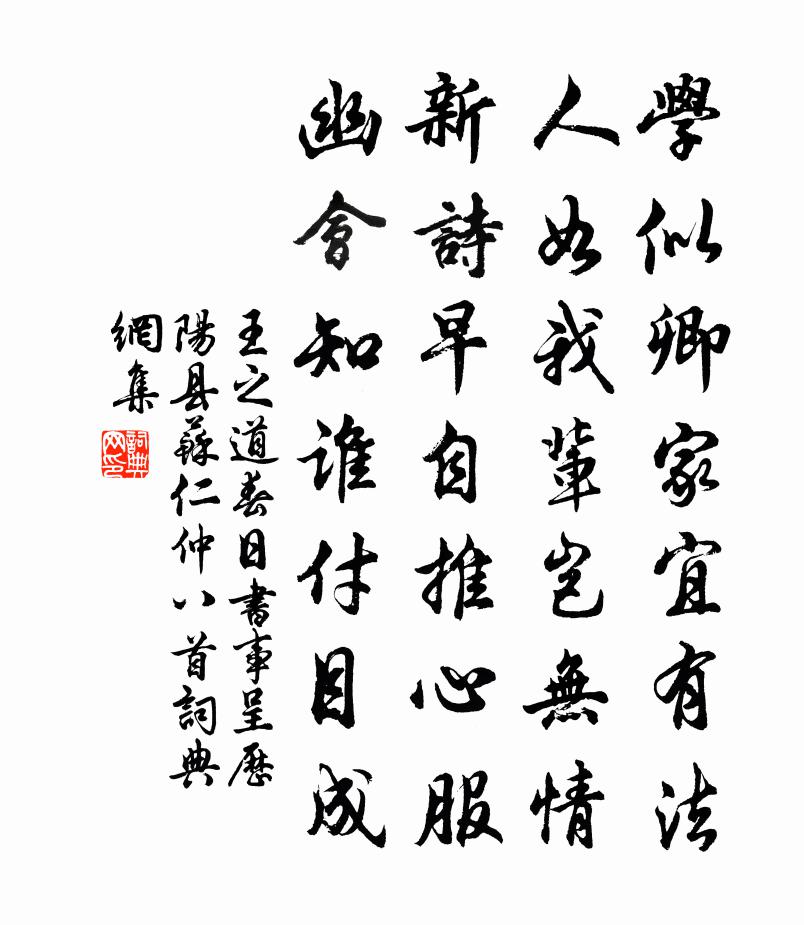 學似卿家宜有法
人如我輩豈無情
新詩早自推心服
幽會知誰付目成
王之道春日書事呈歷
陽县蘇仁仲八首詞典
網集
詞典
网印